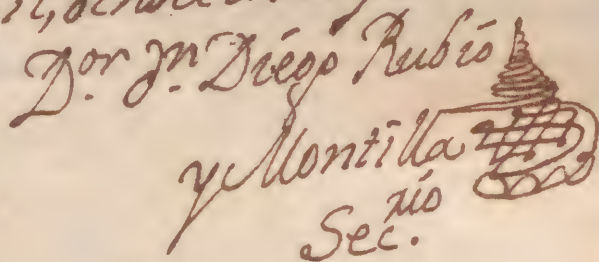 D.ᵒʳ Jn. Diego Rubio
y Montilla
Sec.ʳⁱᵒ